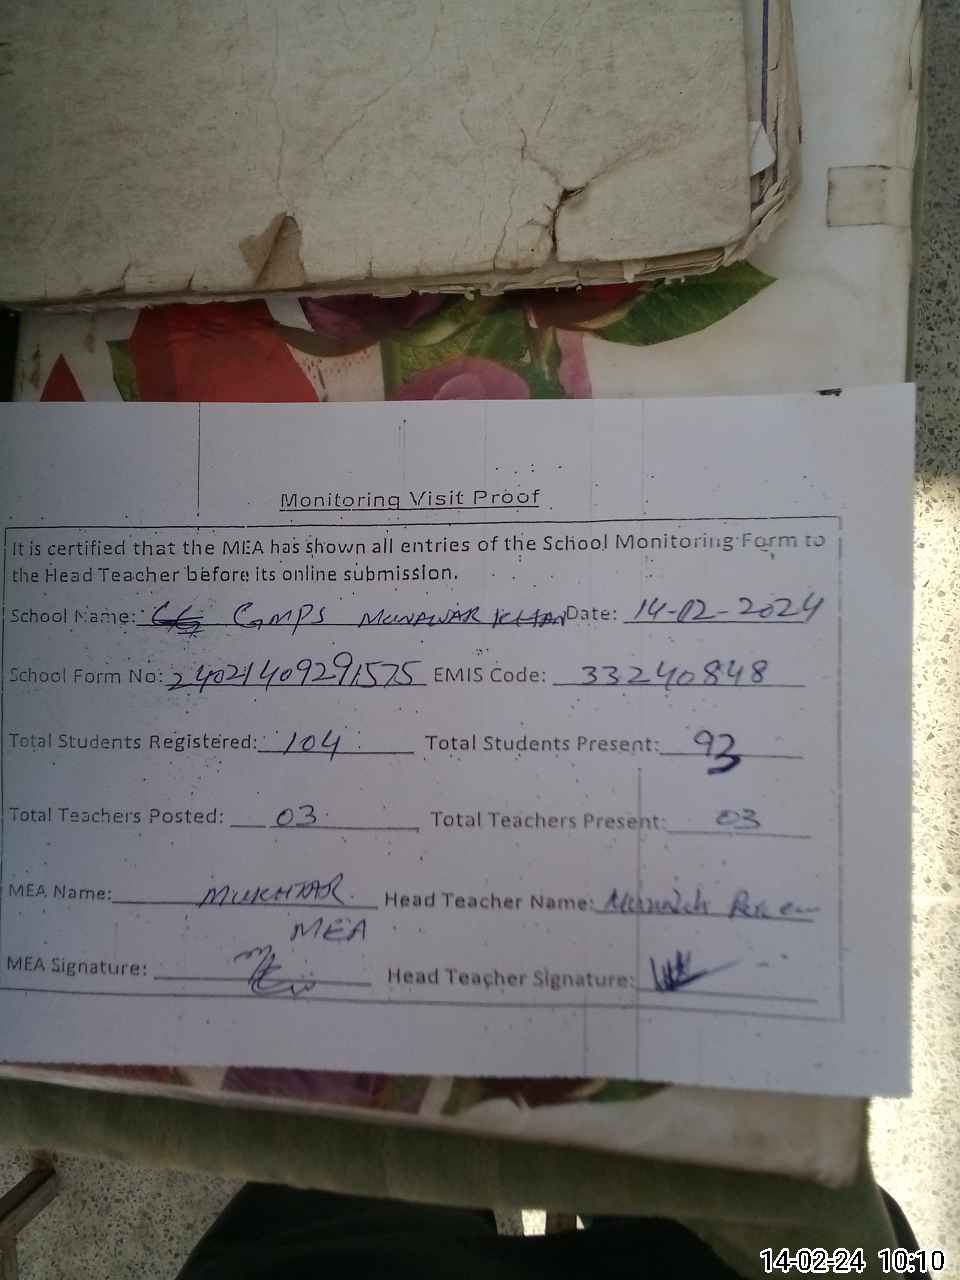 Monitoring Visit Proof
It is certified that the MEA has shown all entries of the School Monitoring Form to
the Head Teacher before its online submission.
School Name: GMPS MUNAWAR KHAN Date: 14-02-2024
School Form No: 24021409291575 EMIS Code: 33240848
Total Students Registered: 104 Total Students Present: 93
Total Teachers Posted: 03 Total Teachers Present: 03
MEA Name: MUKHTAR Head Teacher Name:
MEA
MEA Signature: Head Teacher Signature:
14-02-24 10:10